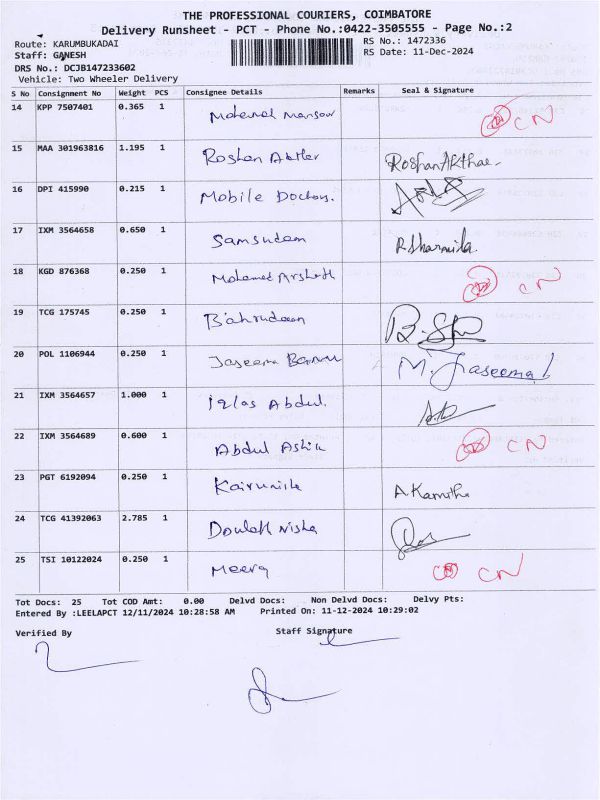 THE PROFESSIONAL COURIERS, COIMBATORE
Delivery Runsheet - PCT - Phone No.:0422-3505555 - Page No.:2
Route: KARUMBUKADAI
RS No.: 1472336
Staff: GANESH
RS Date: 11-Dec-2024
DRS No.: DCJB147233602
Vehicle: Two Wheeler Delivery
S No Consignment No Weight PCS Consignee Details Remarks Seal & Signature
14 KPP 7507401 0.365 1 Mohamed Mansoor CN
15 MAA 301963816 1.195 1 Roshan Akther RoshanAkthae
16 DPI 415990 0.215 1 Mobile Doctors.
17 IXM 3564658 0.650 1 Samsudeen R.Sharmila.
18 KGD 876368 0.250 1 Mohamed Arshath CN
19 TCG 175745 0.250 1 Bahrudeen
20 POL 1106944 0.250 1 Jaseema Banu M. Jaseema
21 IXM 3564657 1.000 1 Iqlas Abdul.
22 IXM 3564689 0.600 1 Abdul Ashik CN
23 PGT 6192094 0.250 1 Kairunisha A Kamitha
24 TCG 41392063 2.785 1 Doulath Nisha
25 TSI 10122024 0.250 1 Meera CN
Tot Docs: 25 Tot COD Amt: 0.00 Delvd Docs: Non Delvd Docs: Delvy Pts:
Entered By :LEELAPCT 12/11/2024 10:28:58 AM Printed On: 11-12-2024 10:29:02
Verified By Staff Signature